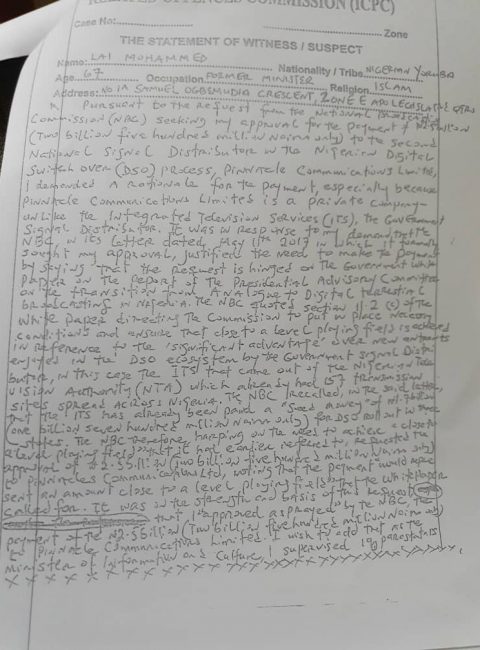 RELATED OFFENCES COMMISSION (ICPC)
Case No: Zone
THE STATEMENT OF WITNESS / SUSPECT
Name: LAI MOHAMMED Nationality / Tribe NIGERIAN YORUBA
Age 67 Occupation FORMER MINISTER Religion ISLAM
Address: NO 1A SAMUEL OGBEMUDIA CRESCENT, ZONE E APO LEGISLATIVE QTRS
Pursuant to the request from the National Broadcasting
Commission (NBC) seeking my approval for the payment of
(Two billion five hundred million Naira only) to the second
National Signal Distributor in the Nigerian Digital
Switch over (DSO) process, Pinnacle Communications Limited,
I demanded a rationale for the payment, especially because
Pinnacle Communications Limited is a private company
unlike the Integrated Television Services (ITS), the Government
Signal Distributor. It was in response to my demand that the
NBC, in its letter dated, May 11th 2017 in which it formally
sought my approval, justified the need to make the payment
by saying that the request is hinged on the Government White
Paper on the Report of the Presidential Advisory Committee
on the transition from Analogue to Digital terrestrial
broadcasting in Nigeria. The NBC quoted section 11.2 (c) of the
White paper directing the Commission to put in place necessary
conditions and ensure that close to a level playing field is achieved
in reference to the 'significant advantage' over new entrants
enjoyed in the DSO ecosystem by the Government signal Distri
butor, in this case the ITS that came out of the Nigerian Tele
vision Authority (NTA) which already had 157 transmission
sites spread across Nigeria. The NBC recalled, in the said letter,
that the ITS has already been paid a "seed money" of N1.7billion
(one billion seven hundred million Naira only) for DSO roll out in three
states. The NBC therefore, harping on the need to achieve a close to
a level playing field that it had earlier referred to, requested the
approval of N2.5billion (Two billion five hundred million Naira only)
to Pinnacle Communications Ltd, noting that the payment would repre
sent an amount close to a level playing field that the White Paper
called for. It was on the strength and basis of this request
that I approved as prayed by the NBC, the
payment of the N2.5billion (Two billion five hundred million Naira only)
to Pinnacle Communications Limited. I wish to add that as the
minister of Information and Culture, I supervised 10 parastatals
x x x x x x x x x x x x x x x x x x x x x x